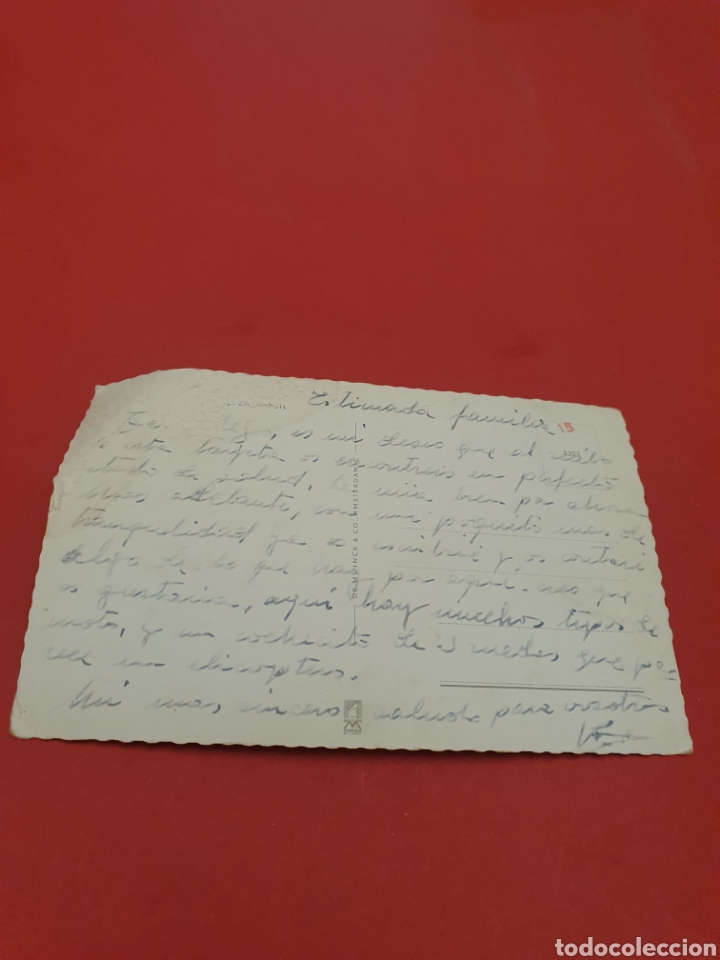 Estimada familia 15
es mi deseo que al
esta tarjeta os encontreis en perfecto
estado de salud. bien por ahora
mas adelante, con un poquito mas de
tranquilidad ya os escribiré y os contaré
algo de lo que hay por aqui. creo que
os gustaria, aqui hay muchos tipos de
moto, y un cochecito de 3 ruedas que pa-
rece un elicoptero.
Mi mas sincero saludo para vosotros
DR. MUINCK & CO. AMSTERDAM
todocoleccion